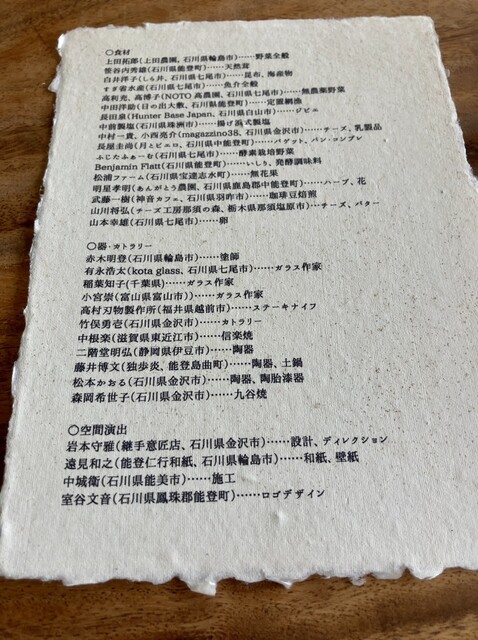 ○食材
上田拓郎(上田農園、石川県輪島市)……野菜全般
笹谷内秀雄(石川県能登町)……天然茸
白井洋子(しら井、石川県七尾市)……昆布、海産物
すぎ省水産(石川県七尾市)……魚介全般
高利充、高博子(NOTO 高農園、石川県七尾市)……無農薬野菜
中田洋助(日の出大敷、石川県能登町)……定置網漁
長田泉(Hunter Base Japan、石川県白山市)……ジビエ
中前製塩(石川県珠洲市)……揚げ浜式製塩
中村一貴、小西亮介(magazzino38、石川県金沢市)……チーズ、乳製品
長屋圭尚(月とピエロ、石川県中能登町)……バゲット、パン・コンプレ
ふじたふぁーむ(石川県七尾市)……酵素栽培野菜
Benjamin Flatt(石川県能登町)……いしり、発酵調味料
松浦ファーム(石川県宝達志水町)……無花果
明星孝明(あんがとう農園、石川県鹿島郡中能登町)……ハーブ、花
武藤一樹(神音カフェ、石川県羽咋市)……珈琲豆焙煎
山川将弘(チーズ工房那須の森、栃木県那須塩原市)……チーズ、バター
山本幸雄(石川県七尾市)……卵
○器・カトラリー
赤木明登(石川県輪島市)……塗師
有永浩太(kota glass、石川県七尾市)……ガラス作家
稲葉知子(千葉県)……ガラス作家
小宮崇(富山県富山市))……ガラス作家
高村刃物製作所(福井県越前市)……ステーキナイフ
竹俣勇壱(石川県金沢市)……カトラリー
中根楽(滋賀県東近江市)……信楽焼
二階堂明弘(静岡県伊豆市)……陶器
藤井博文(独歩炎、能登島曲町)……陶器、土鍋
松本かおる(石川県金沢市)……陶器、陶胎漆器
森岡希世子(石川県金沢市)……九谷焼
○空間演出
岩本守雅(継手意匠店、石川県金沢市)……設計、ディレクション
遠見和之(能登仁行和紙、石川県輪島市)……和紙、壁紙
中城衛(石川県能美市)……施工
室谷文音(石川県鳳珠郡能登町)……ロゴデザイン